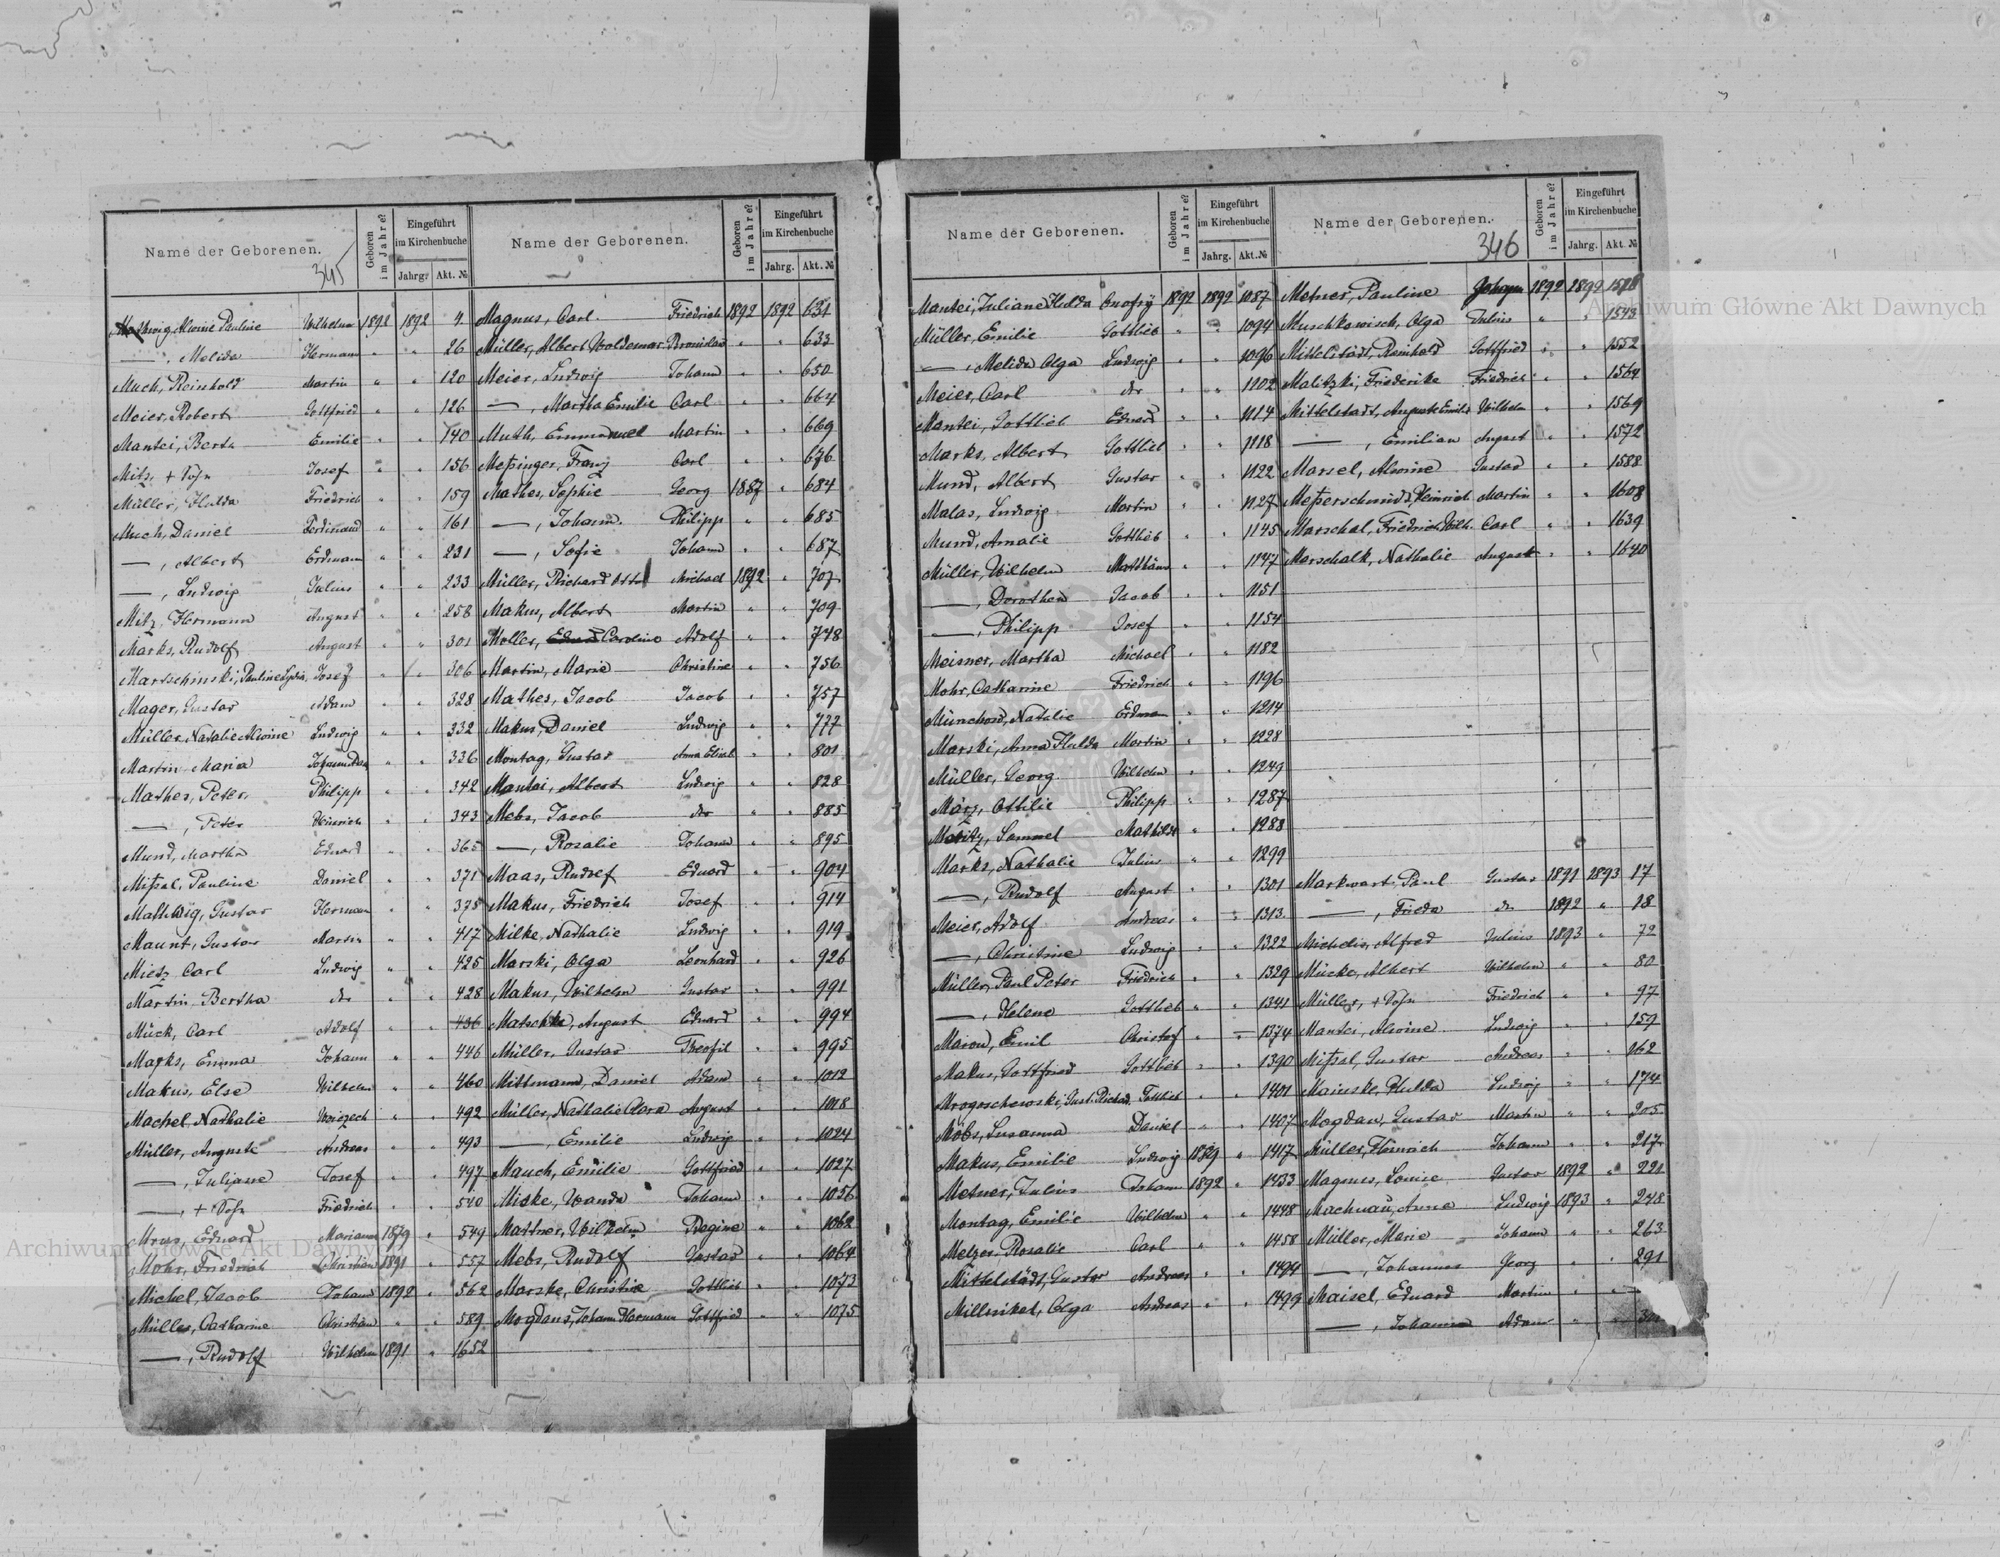 Name der Geborenen. 345 Geboren im Jahre? Eingeführt im Kirchenbuche Jahrg. Akt. №
Mathwig, Alwine Pauline Wilhelm 1892 1892 4.
—, Melida Herman " " 26
Much, Reinhold Martin " " 120
Meier, Robert Gottfried " " 126
Mantei, Berta Emilie " " 140
Mitz, + Sohn Josef " " 156
Müller, Hulda Friedrich " " 159
Much, Daniel Ferdinand " " 161
—, Albert Erdmann " " 231
—, Ludwig Julius " " 233
Mitz, Hermann August " " 258
Marks, Rudolf August " " 301
Martschinski, Pauline Lydia Josef " " 306
Mager, Gustav Adam " " 328
Müller, Natalie Alwine Ludwig " " 332
Martin, Maria " " 336
Mathes, Peter Philipp " " 342
—, Peter Heinrich " " 343
Mund, Martha Eduard " " 365
Mißal, Pauline Daniel " " 371
Mathwig, Gustav Herman " " 375
Maunt, Gustav Martin " " 417
Mietz, Carl Ludwig " " 425
Martin, Bertha dto " " 428
Mück, Carl Adolf " " 436
Marks, Emma Johann " " 446
Makus, Else Wilhelm " " 460
Machel, Nathalie " " 492
Müller, Auguste Andreas " " 493
—, Juliane Josef " " 497
—, + Sohn Friedrich " " 540
Mrus, Eduard Marianna 1879 " 549
Mohr, Friedrich Christian 1891 " 557
Michel, Jacob Johann 1892 " 562
Müller, Catharine Christian " " 589
—, Rudolf Wilhelm 1891 " 1652
Name der Geborenen. Geboren im Jahre? Eingeführt im Kirchenbuche Jahrg. Akt. №
Magnus, Carl Friedrich 1892 1892 631
Müller, Albert Woldemar Bronislaw " " 633
Meier, Ludwig Johann " " 650
—, Martha Emilie Carl " " 664
Muth, Emmanuel Martin " " 669
Meßinger, Franz Carl " " 676
Mathes, Sophie Georg 1887 " 684
—, Johann. Philipp " " 685
—, Sofie Johann " " 687
Müller, Richard Otto Michael 1892 " 707
Makus, Albert Martin " " 709
Moller, Caroline Adolf " " 748
Martin, Marie Christine " " 756
Mathes, Jacob Jacob " " 757
Makus, Daniel Ludwig " " 777
Montag, Gustav Anna Elisab " " 801
Mantai, Albert Ludwig " " 828
Mebs, Jacob dto " " 885
—, Rosalie Johann " " 895
Maas, Rudolf Eduard " " 904
Makus, Friedrich Josef " " 914
Milke, Nathalie Ludwig " " 919
Marski, Olga Leonhard " " 926
Makus, Wilhelm Gustav " " 991
Matschke, August Eduard " " 994
Müller, Gustav Theofil " " 995
Mittmann, Daniel Adam " " 1012
Müller, Nathalie Clara August " " 1018
—, Emilie Ludwig " " 1024
Mauch, Emilie Gottfried " " 1027
Miske, Wanda Johann " " 1056
Mattner, Wilhelm Regine " " 1062
Mebs, Rudolf Gustav " " 1064
Marske, Christine Gottlieb " " 1073
Mogdans, Johann Hermann Gottfried " " 1075
Name der Geborenen. Geboren im Jahre? Eingeführt im Kirchenbuche Jahrg. Akt. №
Mantei, Juliane Hulda Onofry 1892 1892 1087
Müller, Emilie Gottlieb " " 1094
—, Melida Olga Ludwig " " 1096
Meier, Carl dto " " 1102
Mantei, Gottlieb Eduard " " 1114
Marks, Albert Gottlieb " " 1118
Mund, Albert Gustav " " 1122
Malas, Ludwig Martin " " 1127
Mund, Amalie Gottlieb " " 1145
Müller, Wilhelm Matthäus " " 1147
—, Dorothea Jacob " " 1151
—, Philipp Josef " " 1154
Meisner, Martha Michael " " 1182
Mohr, Catharine Friedrich " " 1196
Münchow, Natalie Erdman " " 1214
Marski, Anna Hulda Martin " " 1228
Müller, Georg Wilhelm " " 1249
März, Ottilie Philipp " " 1287
Moritz, Samuel Mathilde " " 1288
Marks, Nathalie Julius " " 1299
—, Rudolf August " " 1301
Meier, Adolf Andreas " " 1313
—, Christine Ludwig " " 1322
Müller, Paul Peter Friedrich " " 1329
—, Helene Gottlieb " " 1341
Marow, Emil Christof " " 1374
Makus, Gottfried Gottlieb " " 1390
Mrogoschewski, Gust. Richard Gottlieb " " 1401
Möbs, Susanna Daniel " " 1407
Makus, Emilie Ludwig 1889 " 1417
Metner, Julius Johann 1892 " 1433
Montag, Emilie Wilhelm " " 1448
Melzer, Rosalie Carl " " 1458
Mittelstädt, Gustav Andreas " " 1494
Millnikel, Olga Andreas " " 1499
Name der Geborenen. 346 Geboren im Jahre? Eingeführt im Kirchenbuche Jahrg. Akt. №
Metner, Pauline Johann 1892 1892
Muschkowisch, Olga Julius " " 1543
Mittelstädt, Reinhold Gottfried " " 1552
Malitzki, Friederike Friedrich " " 1564
Mittelstadt, Auguste Emilie Wilhelm " " 1569
—, Emilian August " " 1572
Marsel, Alwine Gustav " " 1588
Meßerschmidt, Heinrich Martin " " 1608
Marschal, Friedrich Wilh. Carl " " 1639
Marschalk, Nathalie August " " 1640
Markwart, Paul Gustav 1891 1893 17
—, Frieda dto 1892 " 18
Michelis, Alfred Julius 1893 " 72
Mücke, Albert Wilhelm " " 80
Müller, + Sohn Friedrich " " 97
Mantei, Alwine Ludwig " " 159
Mißal, Gustav Andreas " " 162
Mainske, Hulda Ludwig " " 174
Mogdan, Gustav Martin " " 205
Müller, Heinrich Johann " " 217
Magnus, Louise Gustav 1892 " 221
Machnau, Anna Ludwig 1893 " 248
Müller, Marie Johann " " 263
—, Johannes Georg " " 291
Maisel, Eduard Martin " "
—, Johanna Adam " "
Archiwum Główne Akt Dawnych
Archiwum Główne Akt Dawnych